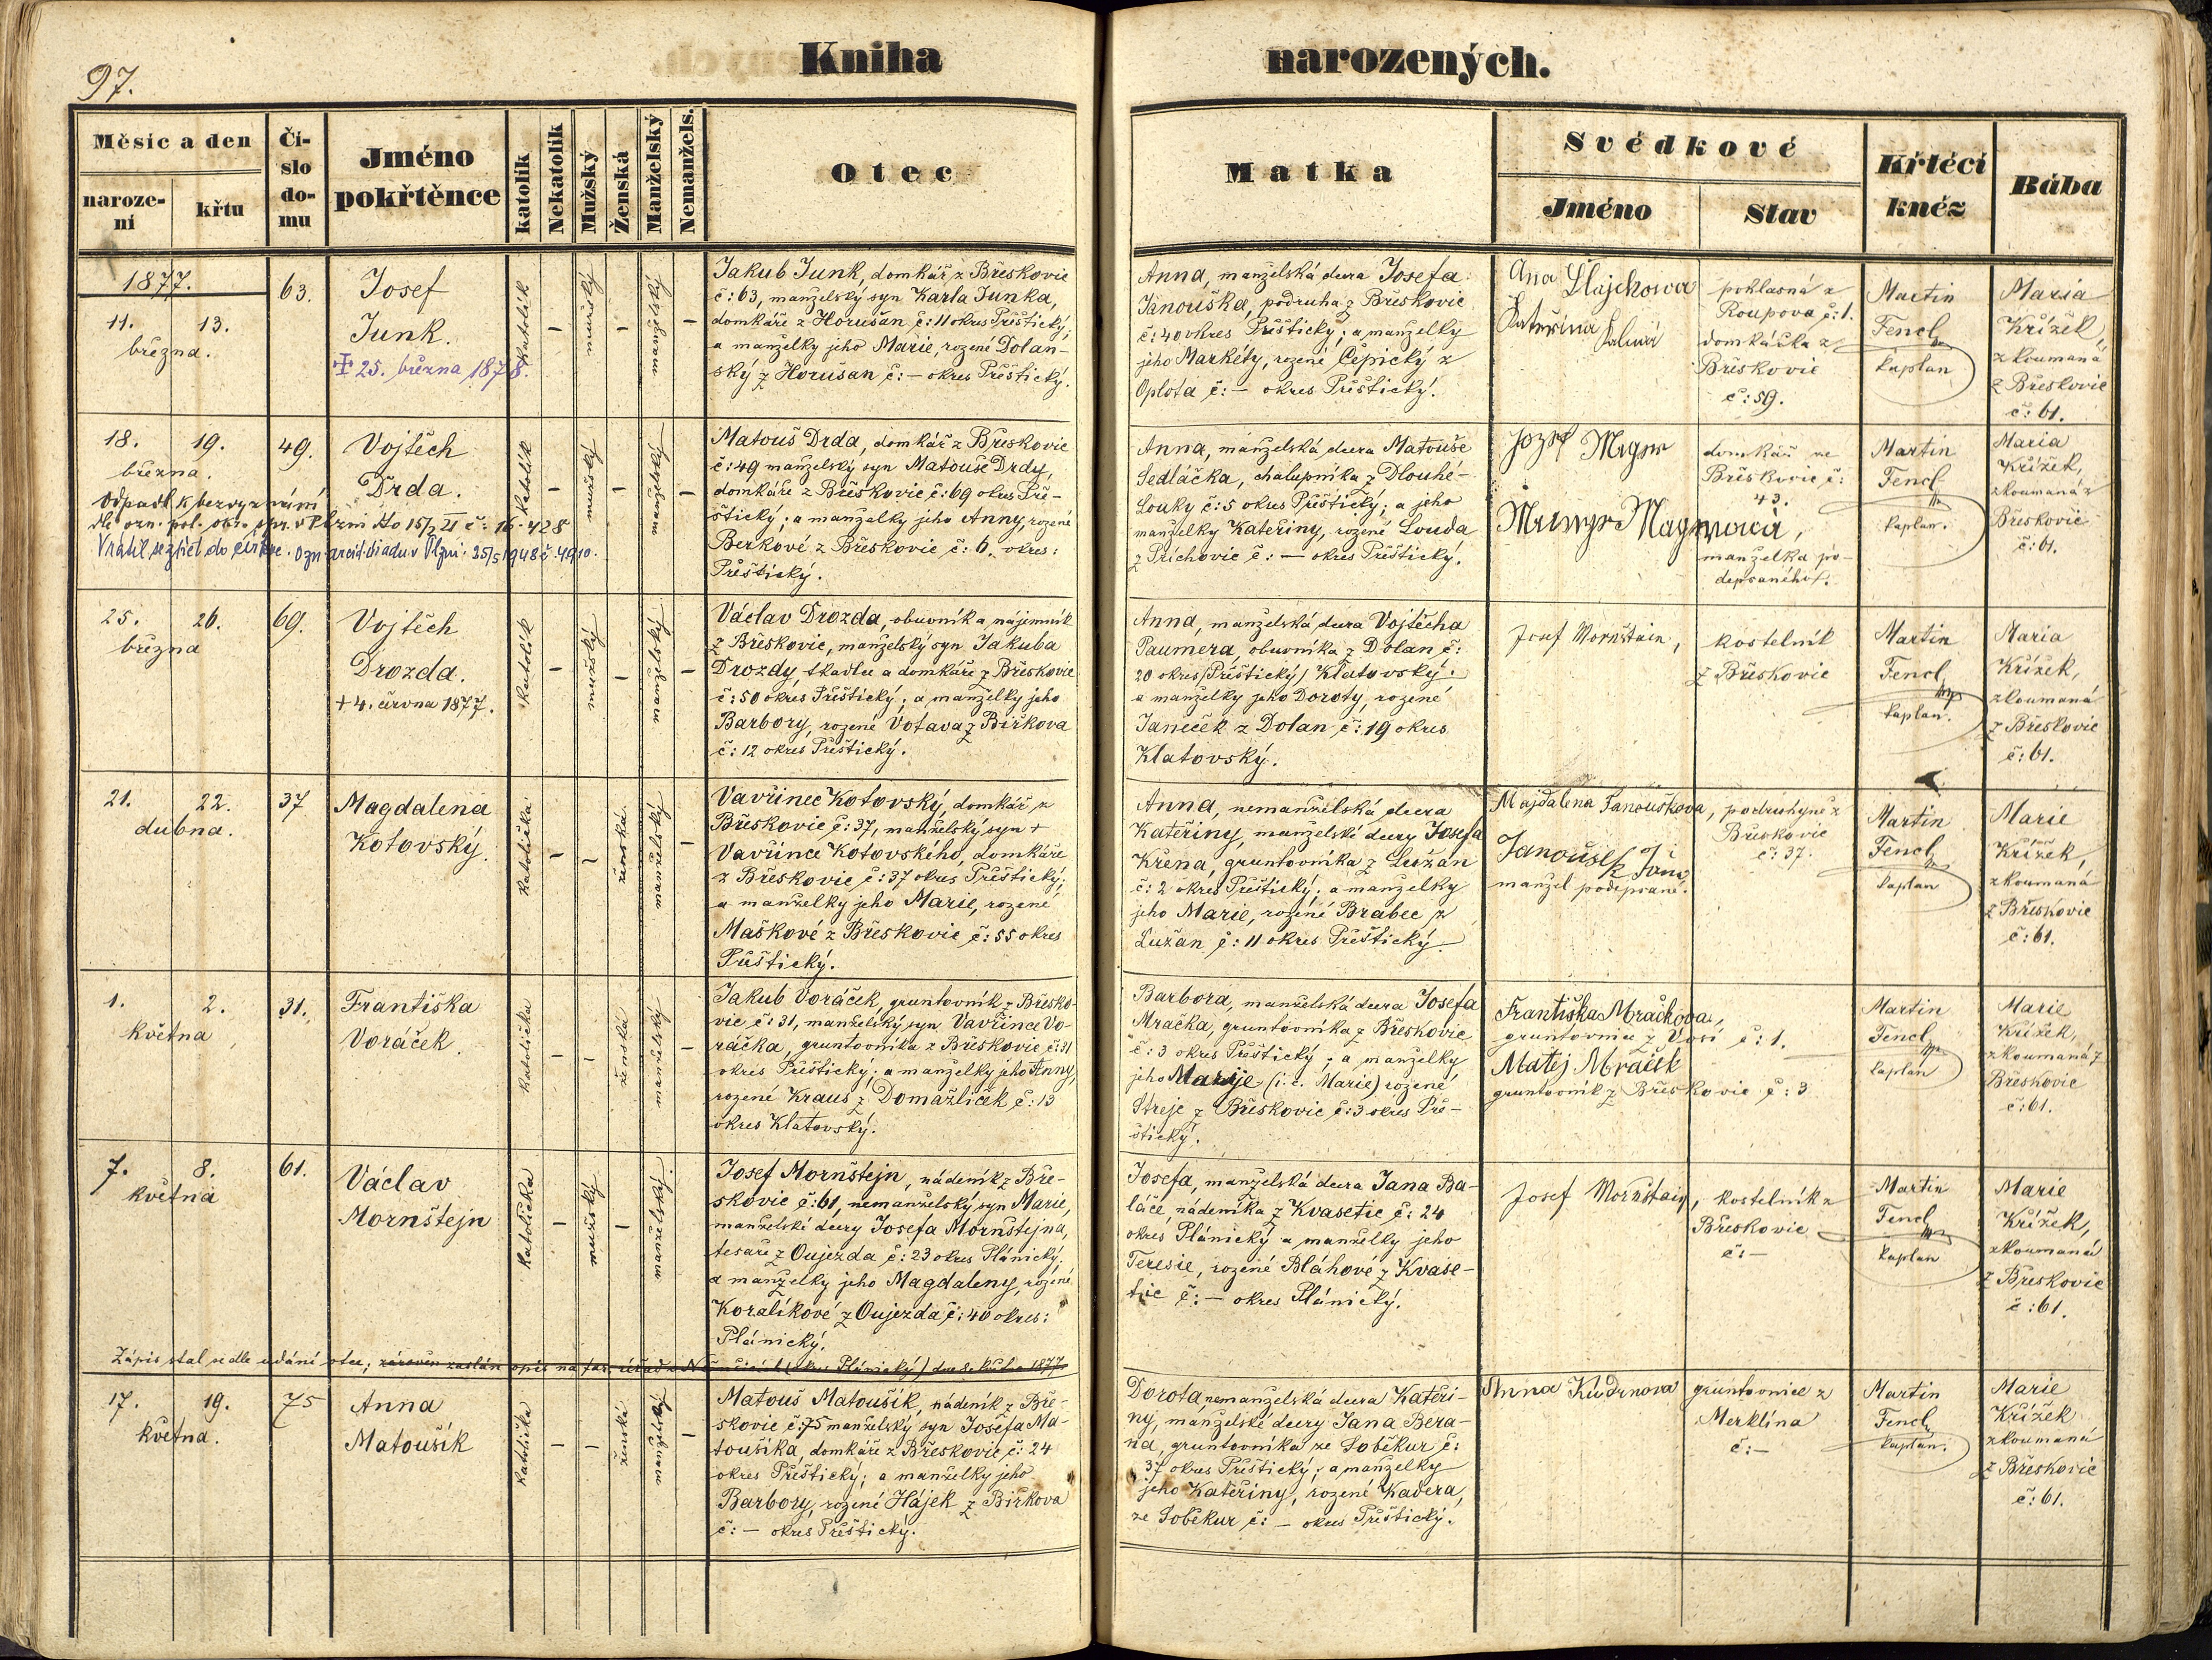 97.
Kniha narozených.
Měsíc a den
narození
křtu
Číslo domu
Jméno pokřtěnce
katolík
Nekatolík
Mužský
Ženská
Manželský
Nemanžels.
Otec
Matka
Svědkové
Jméno
Stav
Křtící kněz
Bába
1877.
11. 13.
března.
63.
Josef
Junk.
25. března 1878.
katolík
–
mužský
–
manželský
–
Jakub Junk, domkář z Březkovic
č: 63, manželský syn Karla Junka,
domkáře z Horušan č: 11 okres Přeštický;
a manželky jeho Marie, rozené Dolan-
ský z Horušan č: – okres Přeštický.
Anna, manželská dcera Josefa
Janouška, podruha z Březkovic
č: 40 okres Přeštický; a manželky
jeho Markéty, rozené Čepický z
Oplota č: – okres Přeštický.
Kateřina
poklasná z
Roupova č: 1.
domkářka z
Břeskovic
č: 59.
Martin
Fencl
kaplan
Maria
Křížek
zkoumaná
z Břeskovic
č: 61.
18. 19.
března.
49.
Vojtěch
Drda.
katolík
–
mužský
–
manželský
–
Matouš Drda, domkář z Břeskovic
č: 49 manželský syn Matouše Drdy,
domkáře z Břeskovic č: 69 okres Pře-
štický; a manželky jeho Anny, rozené
Berkové z Břeskovic č: 6. okres:
Přeštický.
Anna, manželská dcera Matouše
Sedláčka, chalupníka z Dlouhé-
Louky č: 5 okres Přeštický; a jeho
manželky Kateřiny, rozené Louda
z Příchovic č: – okres Přeštický.
domkář ze
Břeskovic č:
43.
manželka po-
depsaného.
Martin
Fencl
kaplan.
Maria
Křížek,
zkoumaná z
Břeskovic
č: 61.
25. 26.
března
69.
Vojtěch
Drozda.
+ 4. června 1877.
katolík
–
mužský
–
manželský
–
Václav Drozda, obuvník a nájemník
z Břeskovic, manželský syn Jakuba
Drozdy, tkadlce a domkáře z Břeskovic
č: 50 okres Přeštický; a manželky jeho
Barbory, rozené Votava z Biřkova
č: 12 okres Přeštický.
Anna, manželská dcera Vojtěcha
Paumera, obuvníka z Dolan č:
20 okres (Přeštický) Klatovský;
a manželky jeho Doroty, rozené
Janeček z Dolan č: 19 okres
Klatovský.
Josef Mornštain,
kostelník
z Břeskovic
Martin
Fencl
kaplan.
Maria
Křížek,
zkoumaná
z Břeskovic
č: 61.
21. 22.
dubna.
37
Magdalena
Kotovský.
katolička
–
–
ženská
manželský
–
Vavřinec Kotovský, domkář z
Břeskovic č: 37, manželský syn +
Vavřince Kotovského, domkáře
z Břeskovic č: 37 okres Přeštický;
a manželky jeho Marie, rozené
Maškové z Břeskovic č: 55 okres
Přeštický.
Anna, nemanželská dcera
Kateřiny, manželské dcery Josefa
Křena, gruntovníka z Lužan
č: 2 okres Přeštický; a manželky
jeho Marie, rozené Brabec z
Lužan č: 11 okres Přeštický
Majdalena Janouškova, podruhyně z
Břeskovic
č: 37.
Janoušek Jan
manžel podepsané.
Martin
Fencl
kaplan
Marie
Křížek,
zkoumaná
z Břeskovic
č: 61.
1. 2.
května
31.
Františka
Voráček.
katolička
–
–
ženská
manželský
–
Jakub Voráček, gruntovník z Břesko-
vic č: 31, manželský syn Vavřince Vo-
ráčka, gruntovníka z Břeskovic č: 31
okres Přeštický; a manželky jeho Anny,
rozené Kraus z Domažliček č: 13
okres Klatovský.
Barbora, manželská dcera Josefa
Mračka, gruntovníka z Břeskovic
č: 3 okres Přeštický; a manželky
jeho Marije (i. e. Marie) rozené
Streje z Břeskovic č: 3 okres Pře-
štický.
Františka Mračkova,
gruntovnice z Vosí č: 1.
Matěj Mraček
gruntovník z Břeskovic č: 3
Martin
Fencl
kaplan
Marie
Křížek,
zkoumaná z
Břeskovic
č: 61.
7. 8.
května
61.
Václav
Mornštejn
katolička
–
mužský
–
manželský
Josef Mornštejn, nádeník z Bře-
skovic č: 61, nemanželský syn Marie,
manželské dcery Josefa Mornštejna,
tesaře z Oujezda č: 23 okres Plánický,
a manželky jeho Magdaleny, rozené
Koralíkové z Oujezda č: 40 okres:
Plánický.
Josefa, manželská dcera Jana Ba-
láče, nádeníka z Kvasetic č: 24
okres Plánický a manželky jeho
Teresie, rozené Bláhové z Kvase-
tic č: – okres Plánický.
Josef Mornštain,
kostelník z
Břeskovic
č: –
Martin
Fencl
kaplan
Marie
Křížek,
zkoumaná
z Břeskovic
č: 61.
Zápis stal se dle udání otce;
17. 19.
května.
75
Anna
Matoušík
katolička
–
–
ženská
manželský
–
Matouš Matoušík, nádeník z Bře-
skovic č: 75 manželský syn Josefa Ma-
toušíka, domkáře z Břeskovic č: 24
okres Přeštický; a manželky jeho
Barbory, rozené Hájek z Biřkova
č: – okres Přeštický.
Dorota, nemanželská dcera Kateři-
ny, manželské dcery Jana Bera-
na, gruntovníka ze Soběkur č:
37 okres Přeštický; a manželky
jeho Kateřiny, rozené Kavera,
ze Soběkur č: – okres Přeštický.
Anna Kudrnova
gruntovnice z
Merklína
č: –
Martin
Fencl
kaplan.
Marie
Křížek
zkoumaná
z Břeskovic
č: 61.